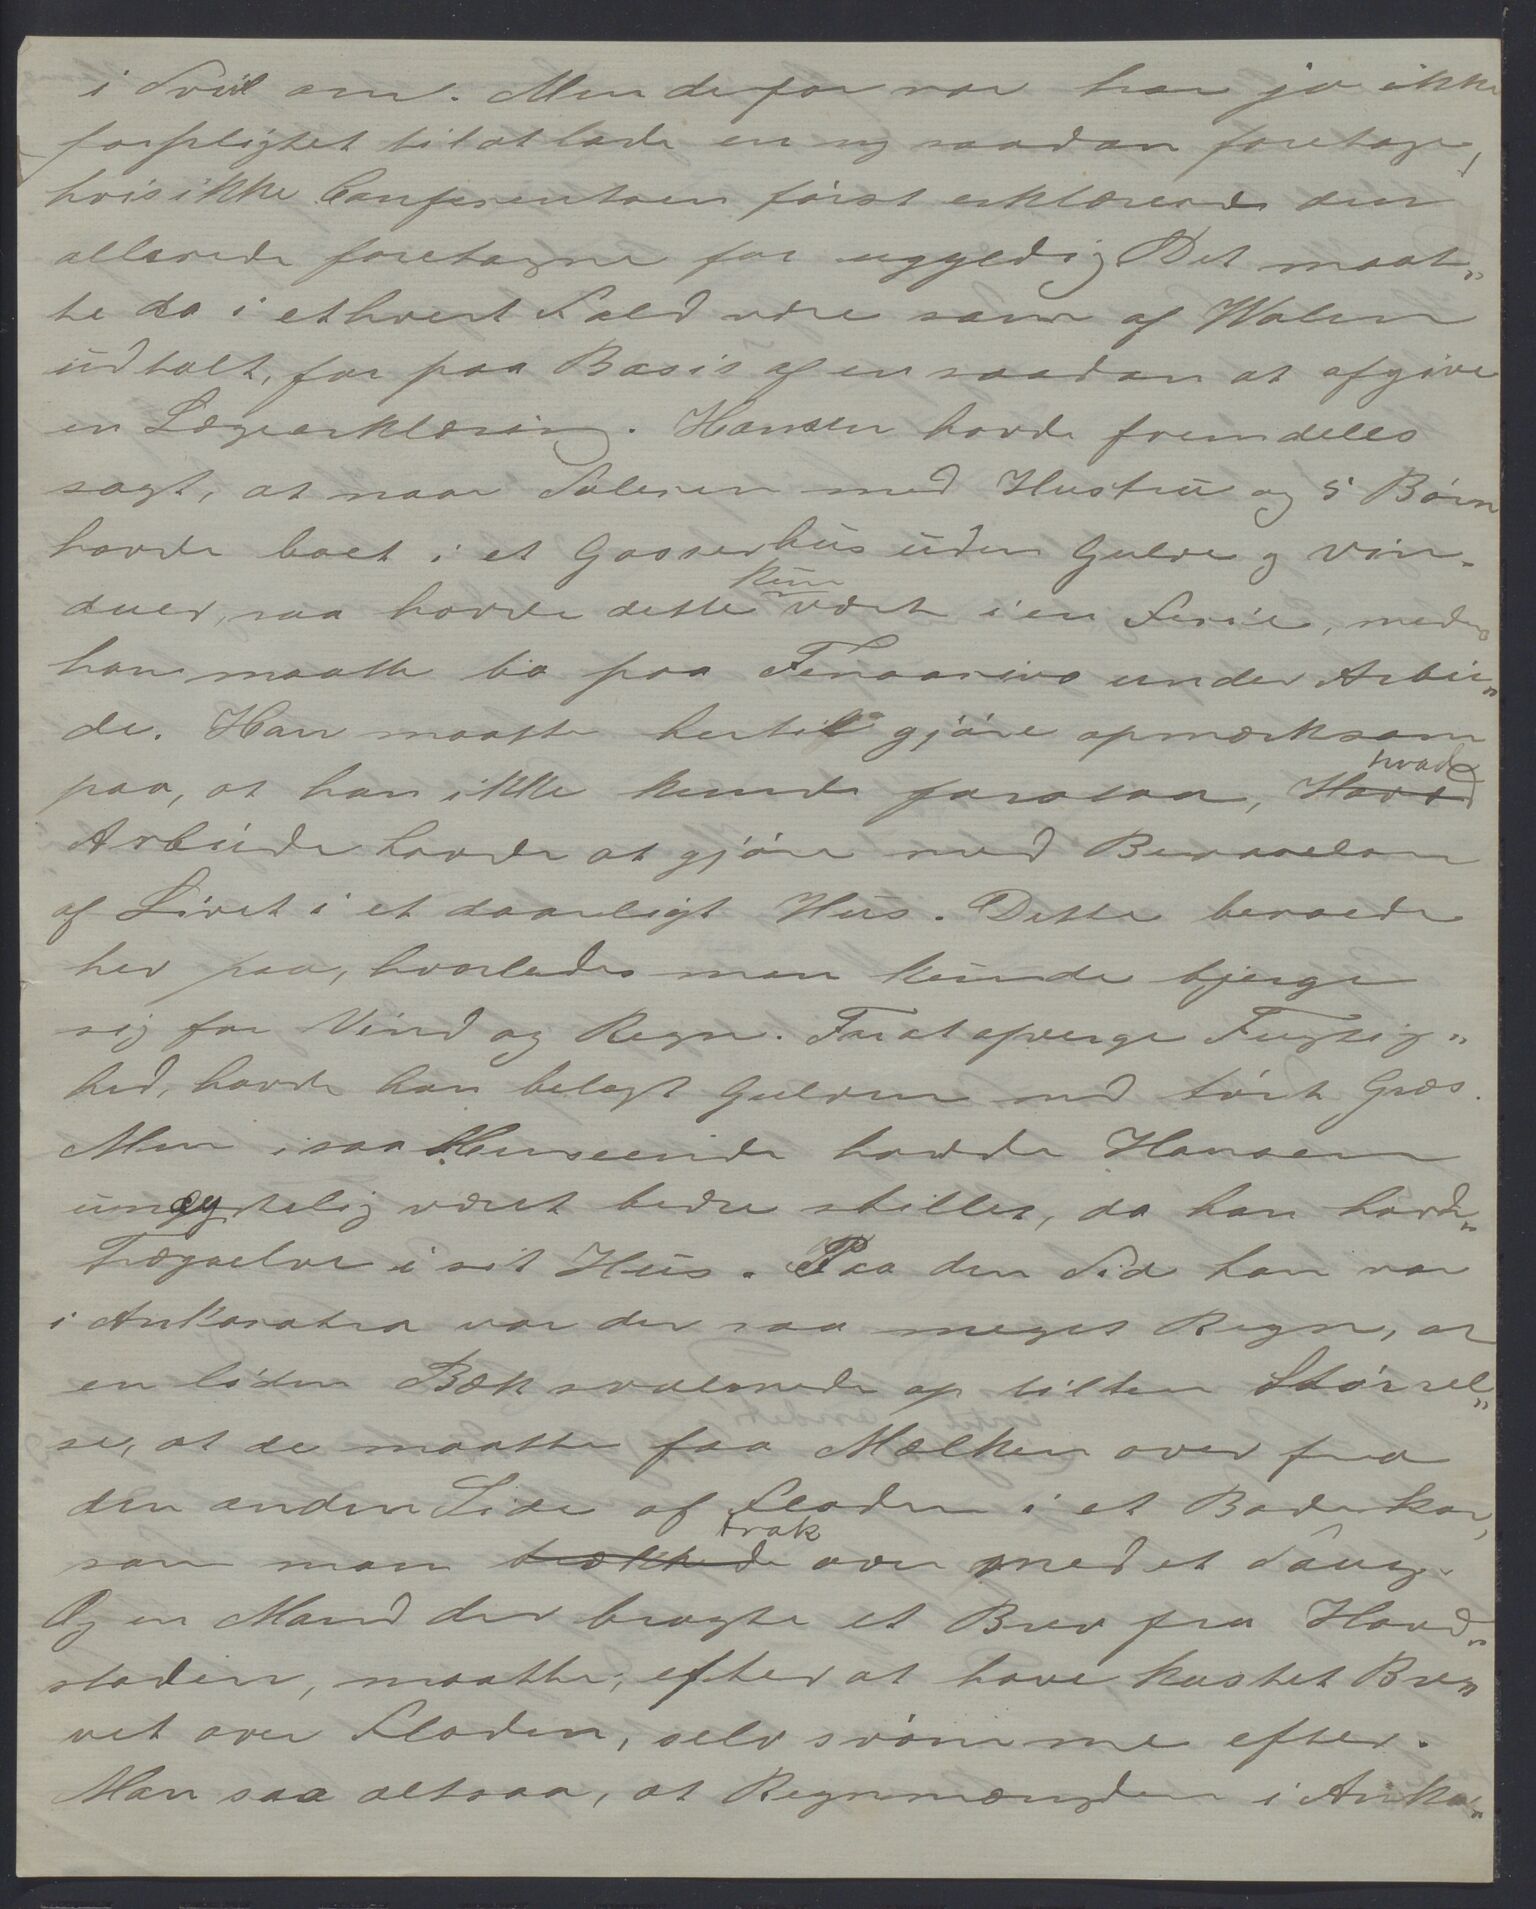 i Tvivl om. Men derfor var han jo ikke
forpligtet til at lade en ny saadan foretage,
hvis ikke Conferentsen först erklærede den
allerede foretagne for ugyldig. Det maat„
te da i ethvert Fald være som af Walen
udtalt, for paa Basis af en saadan at afgive
en Lægeerklæring. Hansen havde fremdeles
sagt, at naar Taleren med Hustru og 5 Börn
havde boet i et Gasserhus uden Gulve og Vin-
duer, saa havde dette kun været i en Ferie, medens
han maatte bo paa Fenoarivo under Arbei„
de. Han maatte hertil gjöre opmærksom
paa, at han ikke kunde forstaa, Havd hvad
Arbeide havde at gjöre med Bevarelsen
af Livet i et daarligt Hus. Dette beroede
her paa, hvorledes man kunde bjerge
sig for Vind og Regn. For at afverge Fugtig„
hed, havde han belagt Gulvene med tört Græs.
Men i saa Henseende havde Hansen
unægtelig været bedre stillet, da han havde„
Trægulve i sit Hus. Paa den Tid han var
i Ankaratra var der saa meget Regn, at
en liden Bæk svulmede op til den Störrel„
se, at de maatte faa Mælken over fra
den anden Side af Floden i et Badekar,
som man trækkede trak over med et Taug.
Og en Mand der bragte et Brev fra Hoved„
staden, maatte, efter at have kastet Bre„
vet over Floden, selv svömme efter.
Man saa altsaa, at Regnmængden i Anka„